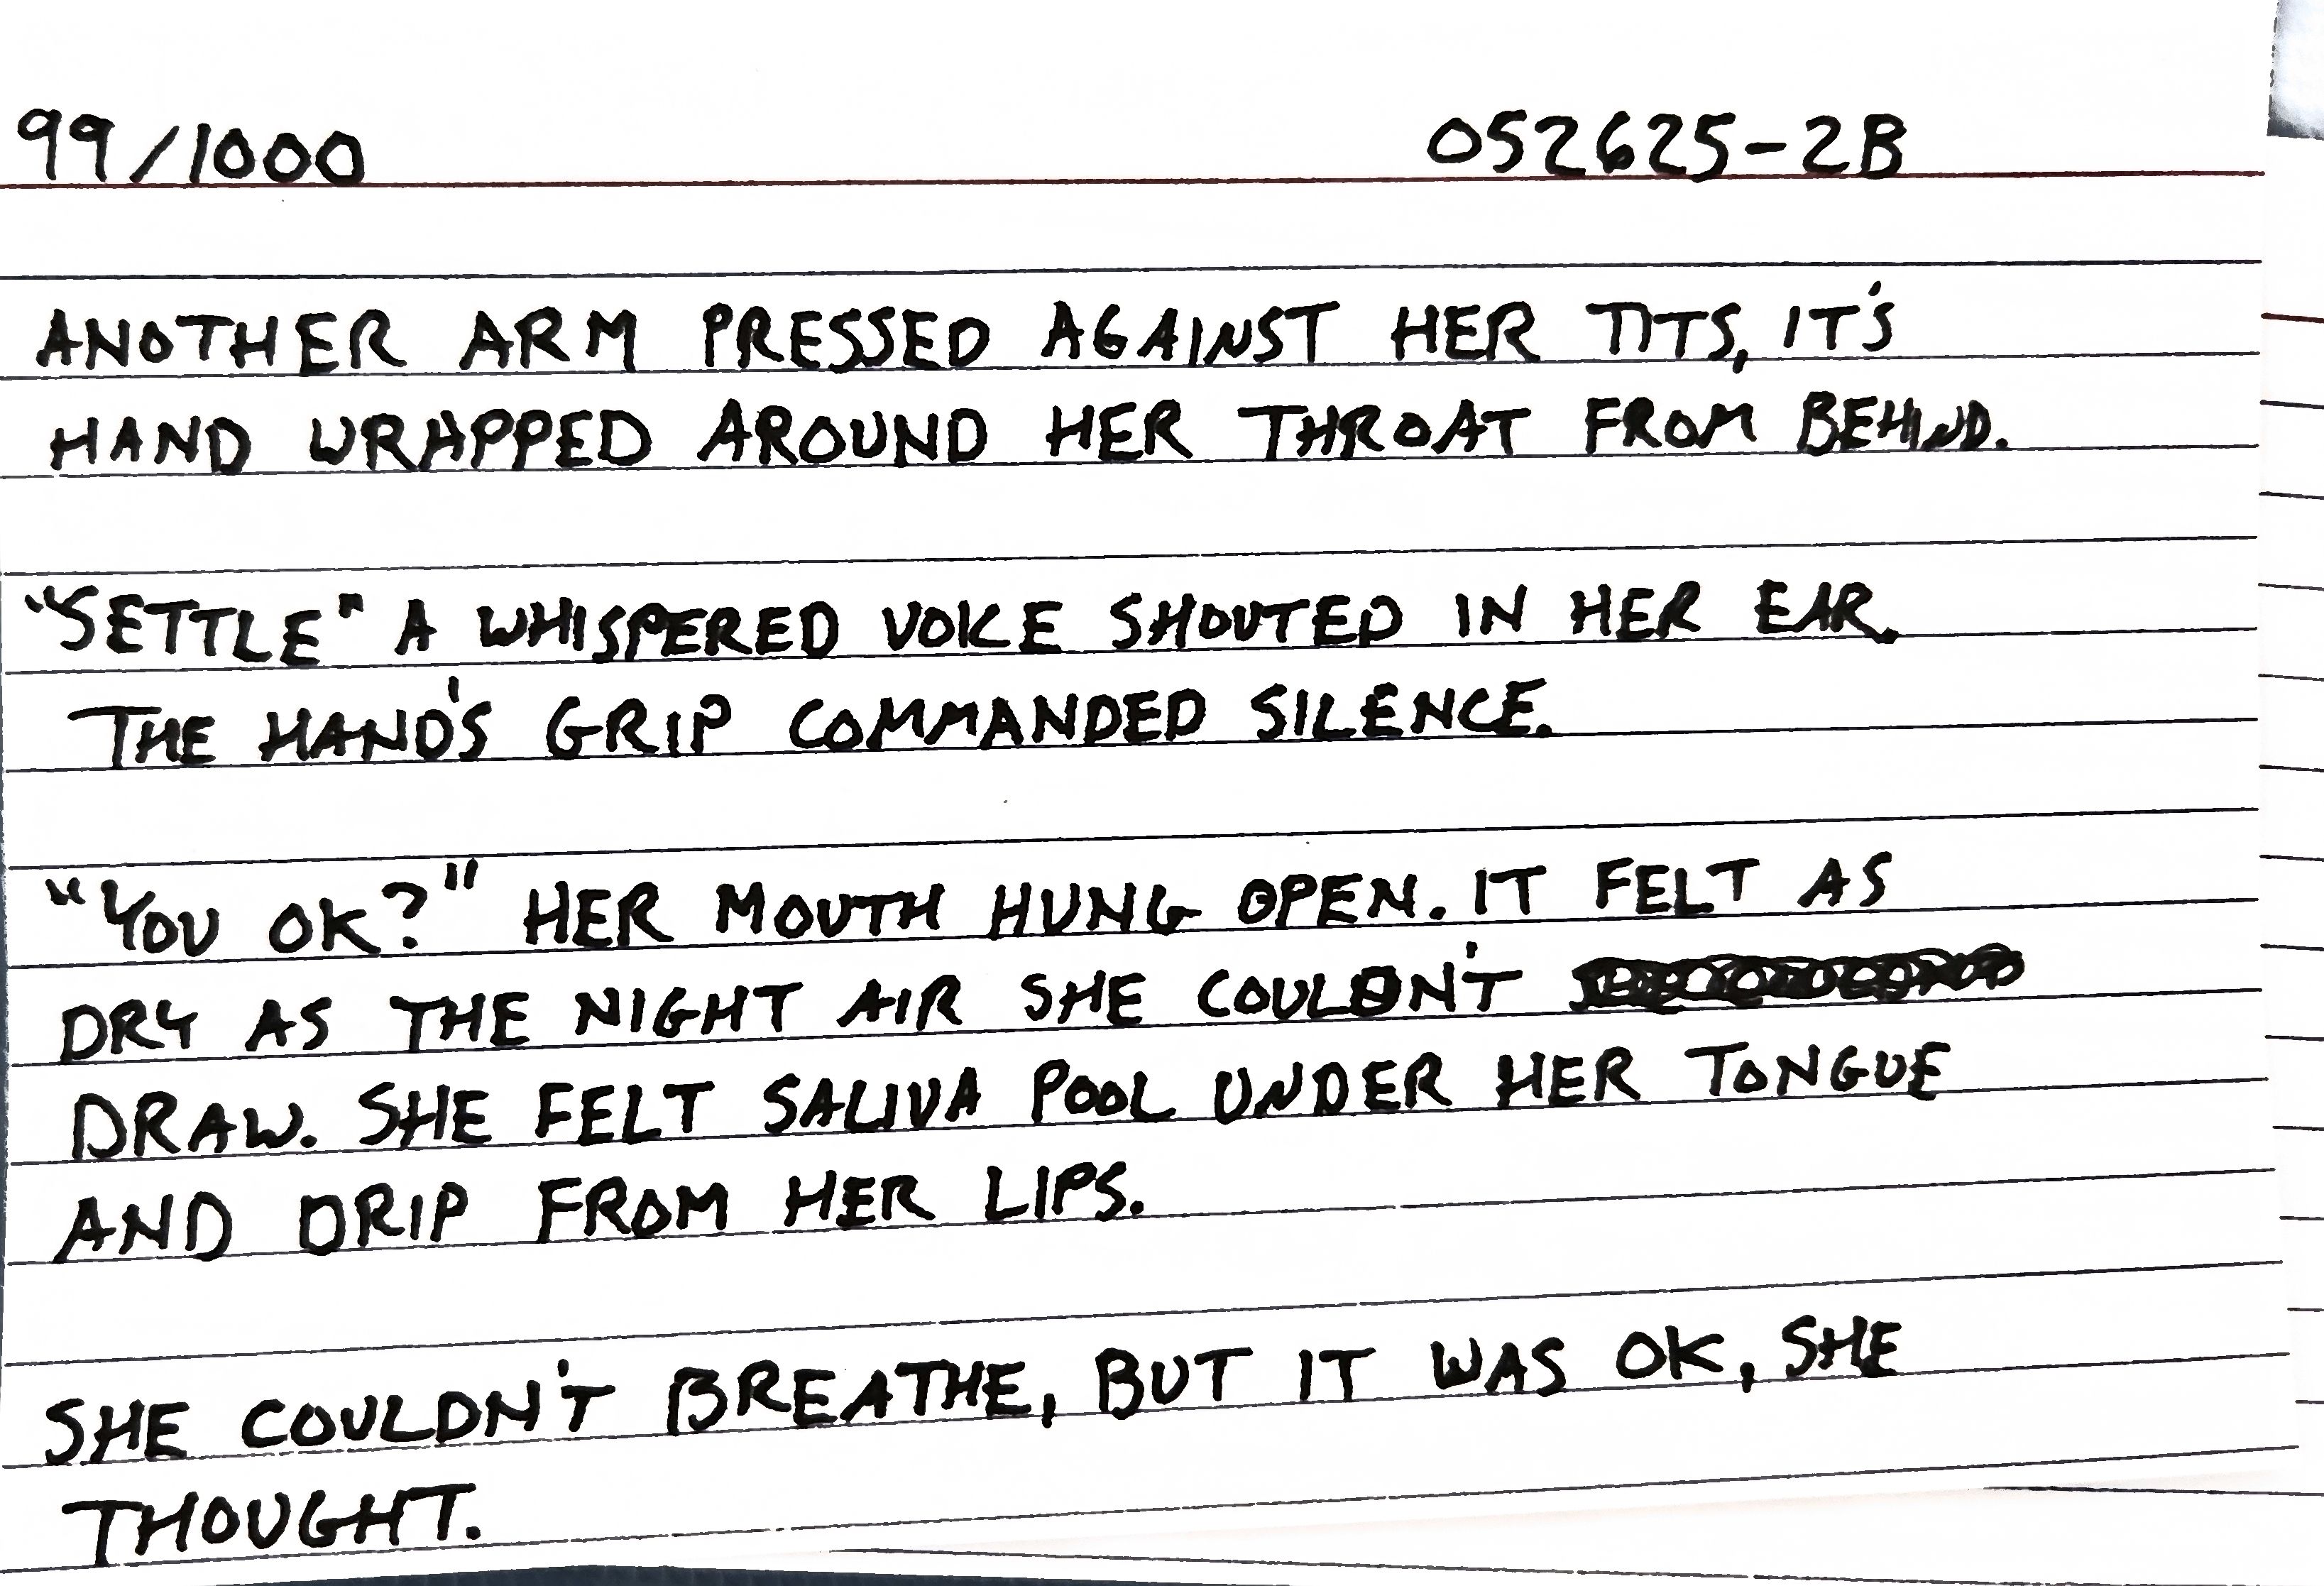 99/1000 052625-2B
ANOTHER ARM PRESSED AGAINST HER TITS, IT'S
HAND WRAPPED AROUND HER THROAT FROM BEHIND.
"SETTLE" A WHISPERED VOICE SHOUTED IN HER EAR.
THE HAND'S GRIP COMMANDED SILENCE.
"YOU OK?" HER MOUTH HUNG OPEN. IT FELT AS
DRY AS THE NIGHT AIR SHE COULDN'T
DRAW. SHE FELT SALIVA POOL UNDER HER TONGUE
AND DRIP FROM HER LIPS.
SHE COULDN'T BREATHE, BUT IT WAS OK, SHE
THOUGHT.